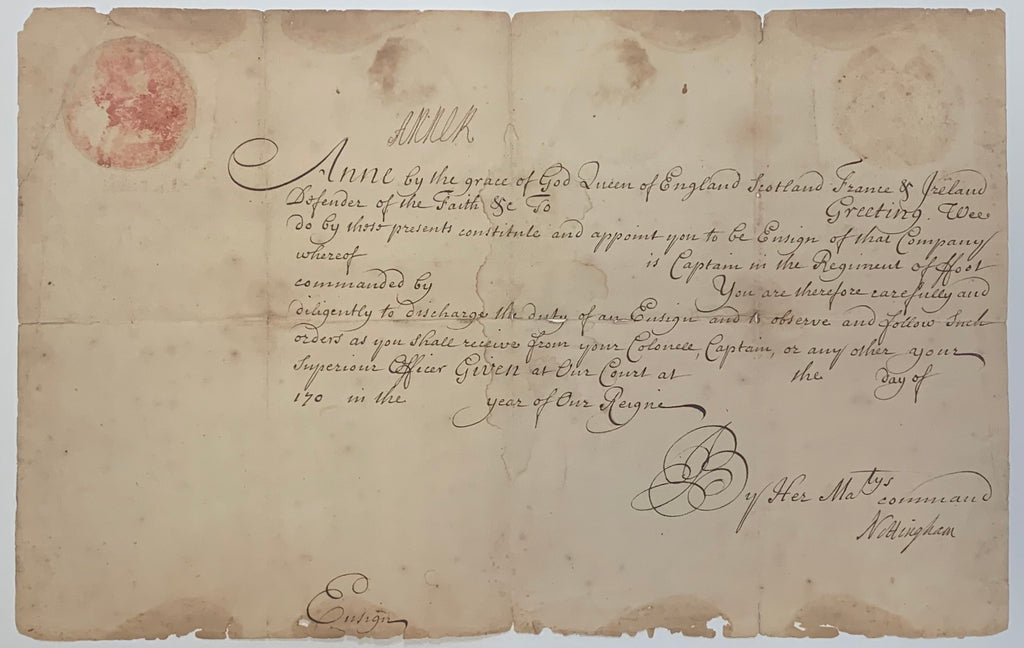 ANNE R
Anne by the grace of God Queen of England Scotland France & Ireland
Defender of the Faith &c To Greeting. Wee
do by these presents constitute and appoint you to be Ensign of that Company
whereof is Captain in the Regiment of ffoot
commanded by You are therefore carefully and
diligently to discharge the duty of an Ensign and to observe and follow such
orders as you shall receive from your Colonell, Captain, or any other your
Superiour Officer Given at Our Court at the day of
170 in the year of Our Reigne
By Her Ma^tys command
Nottingham
Ensign